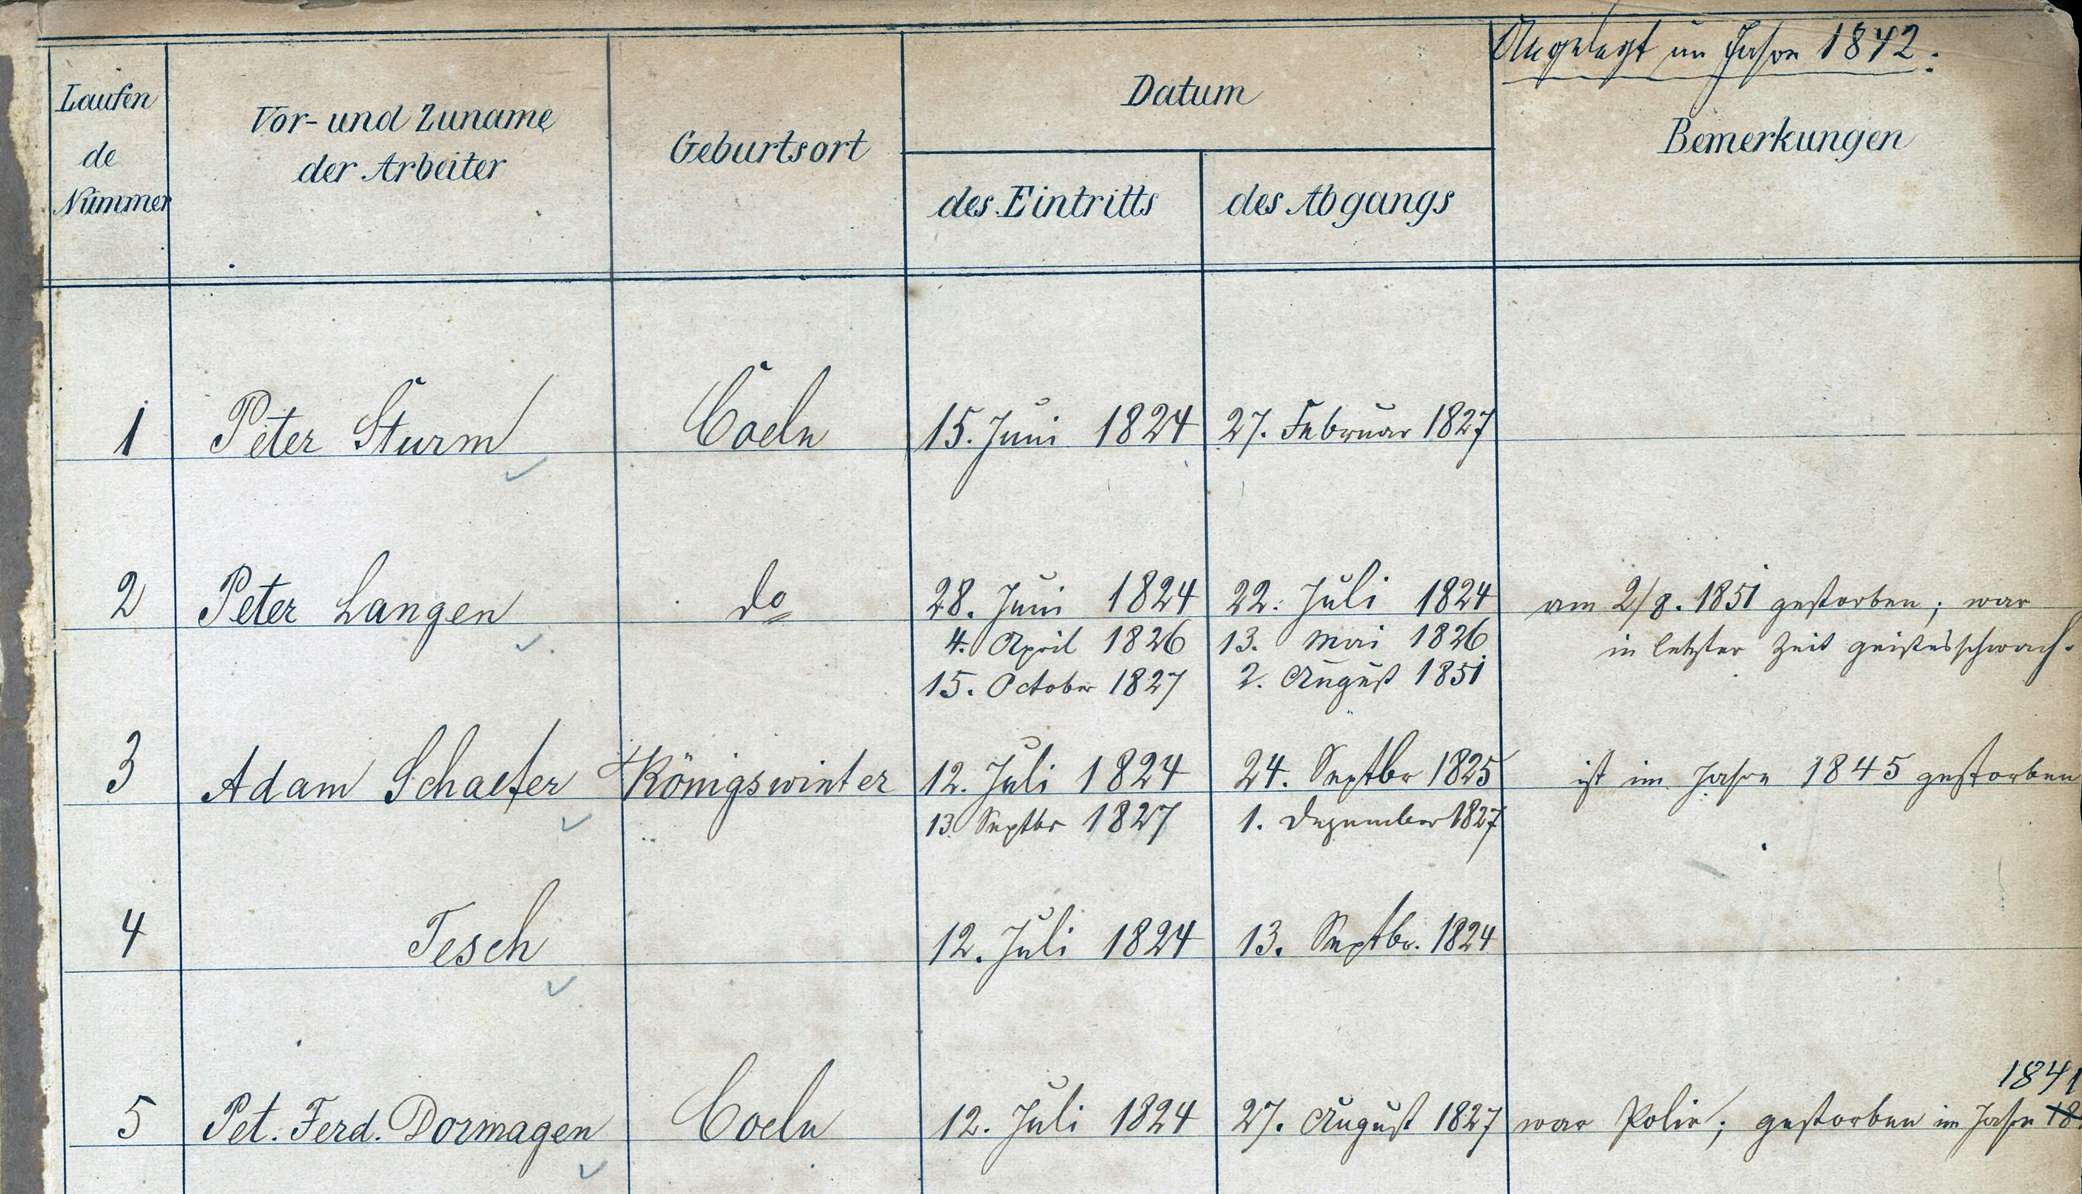 Angelegt im Jahre 1842.
Laufen
de
Nummer
Vor- und Zuname
der Arbeiter
Geburtsort
Datum
des Eintritts
des Abgangs
Bemerkungen
1 Peter Sturm Coeln 15. Juni 1824 27. Februar 1827
2 Peter Langen do 28. Juni 1824 22. Juli 1824 am 2/8. 1851 gestorben; war
4. April 1826 13. Mai 1826 in letzter Zeit geistesschwach.
15. October 1827 2. August 1851
3 Adam Schaefer Königswinter 12. Juli 1824 24. Septbr 1825 ist im Jahre 1845 gestorben
13. Septbr 1827 1. Dezember 1827
4 Tesch 12. Juli 1824 13. Septbr. 1824
1841
5 Pet. Ferd. Dormagen Coeln 12. Juli 1824 27. August 1827 war Polir; gestorben im Jahre